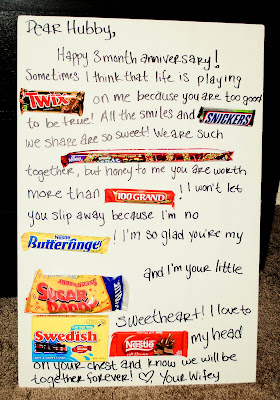 Dear Hubby,
Happy 3 month anniversary!
Sometimes I think that life is playing
TWIX on me because you are too good
to be true! All the smiles and SNICKERS
we share are so sweet! We are such

together, but honey to me you are worth
more than 100 GRAND! I won't let
you slip away because I'm no
Nestle Butterfinger! I'm so glad you're my
SUGAR DADDY and I'm your little
Swedish sweetheart! I love to
Nestle my head
on your chest and know we will be
together forever! ♡ Your Wifey